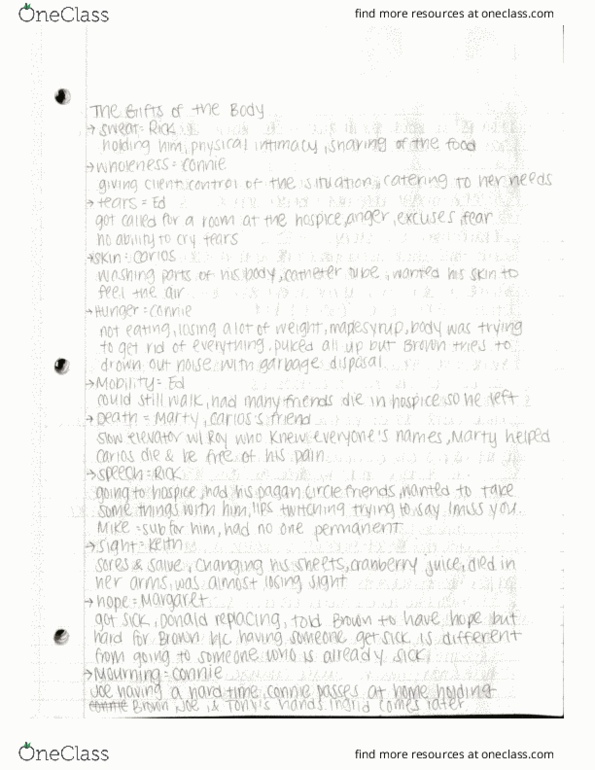 OneClass
find more resources at oneclass.com
The Gifts of the Body
→ sweat = Rick
holding him, physical intimacy, sharing of the food
→ wholeness = Connie
giving client control of the situation, catering to her needs
→ tears = Ed
got called for a room at the hospice, anger, excuses fear
no ability to cry tears
→ skin = Carlos
washing parts of his body, catheter tube, wanted his skin to
feel the air
→ Hunger = Connie
not eating, losing a lot of weight, maple syrup, body was trying
to get rid of everything, puked all up but Brown tries to
drown out noise with garbage disposal
→ Mobility = Ed
could still walk, had many friends die in hospice so he left
→ Death = Marty, Carlos's friend
slow elevator w/ Roy who knew everyone's names, Marty helped
Carlos die & be free of his pain
→ speech = Rick
going to hospice, had his pagan circle friends, wanted to take
some things with him, lips twitching trying to say I miss you.
Mike = sub for him, had no one permanent
→ Sight = Keith
sores & salve, changing his sheets, cranberry juice, died in
her arms, was almost losing sight
→ hope = Margaret
got sick, Donald replacing, told Brown to have hope but
hard for Brown b/c having someone get sick is different
from going to someone who is already sick
→ Mourning = Connie
Joe having a hard time, Connie passes at home holding
Connie Brown Joe & Tony's hands. Ingrid comes later.
OneClass
find more resources at oneclass.com